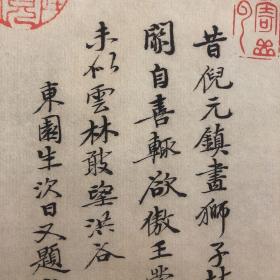 昔倪元鎮畫獅子林
關自喜輒欲傲王蒙
未似雲林敢望洪谷
東園生次日又題